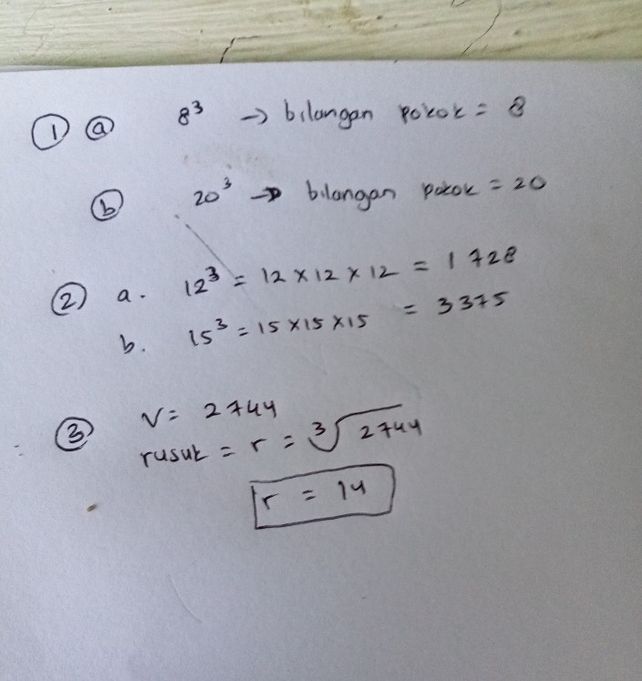 ① ⓐ 8³ → bilangan pokok = 8
ⓑ 20³ → bilangan pokok = 20
② a. 12³ = 12 × 12 × 12 = 1728
b. 15³ = 15 × 15 × 15 = 3375
③ V = 2744
rusuk = r = ³√2744
r = 14